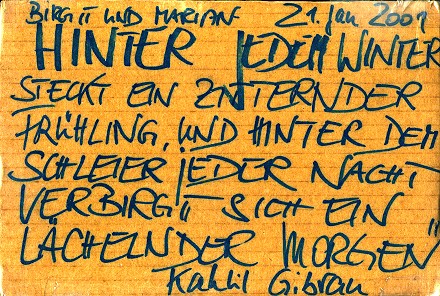 BIRGIT UND MARIAN 21. Jan 2001
HINTER JEDEM WINTER
STECKT EIN ZITTERNDER
FRÜHLING, UND HINTER DEM
SCHLEIER JEDER NACHT
VERBIRGT SICH EIN
LÄCHELNDER MORGEN
Kahlil Gibran